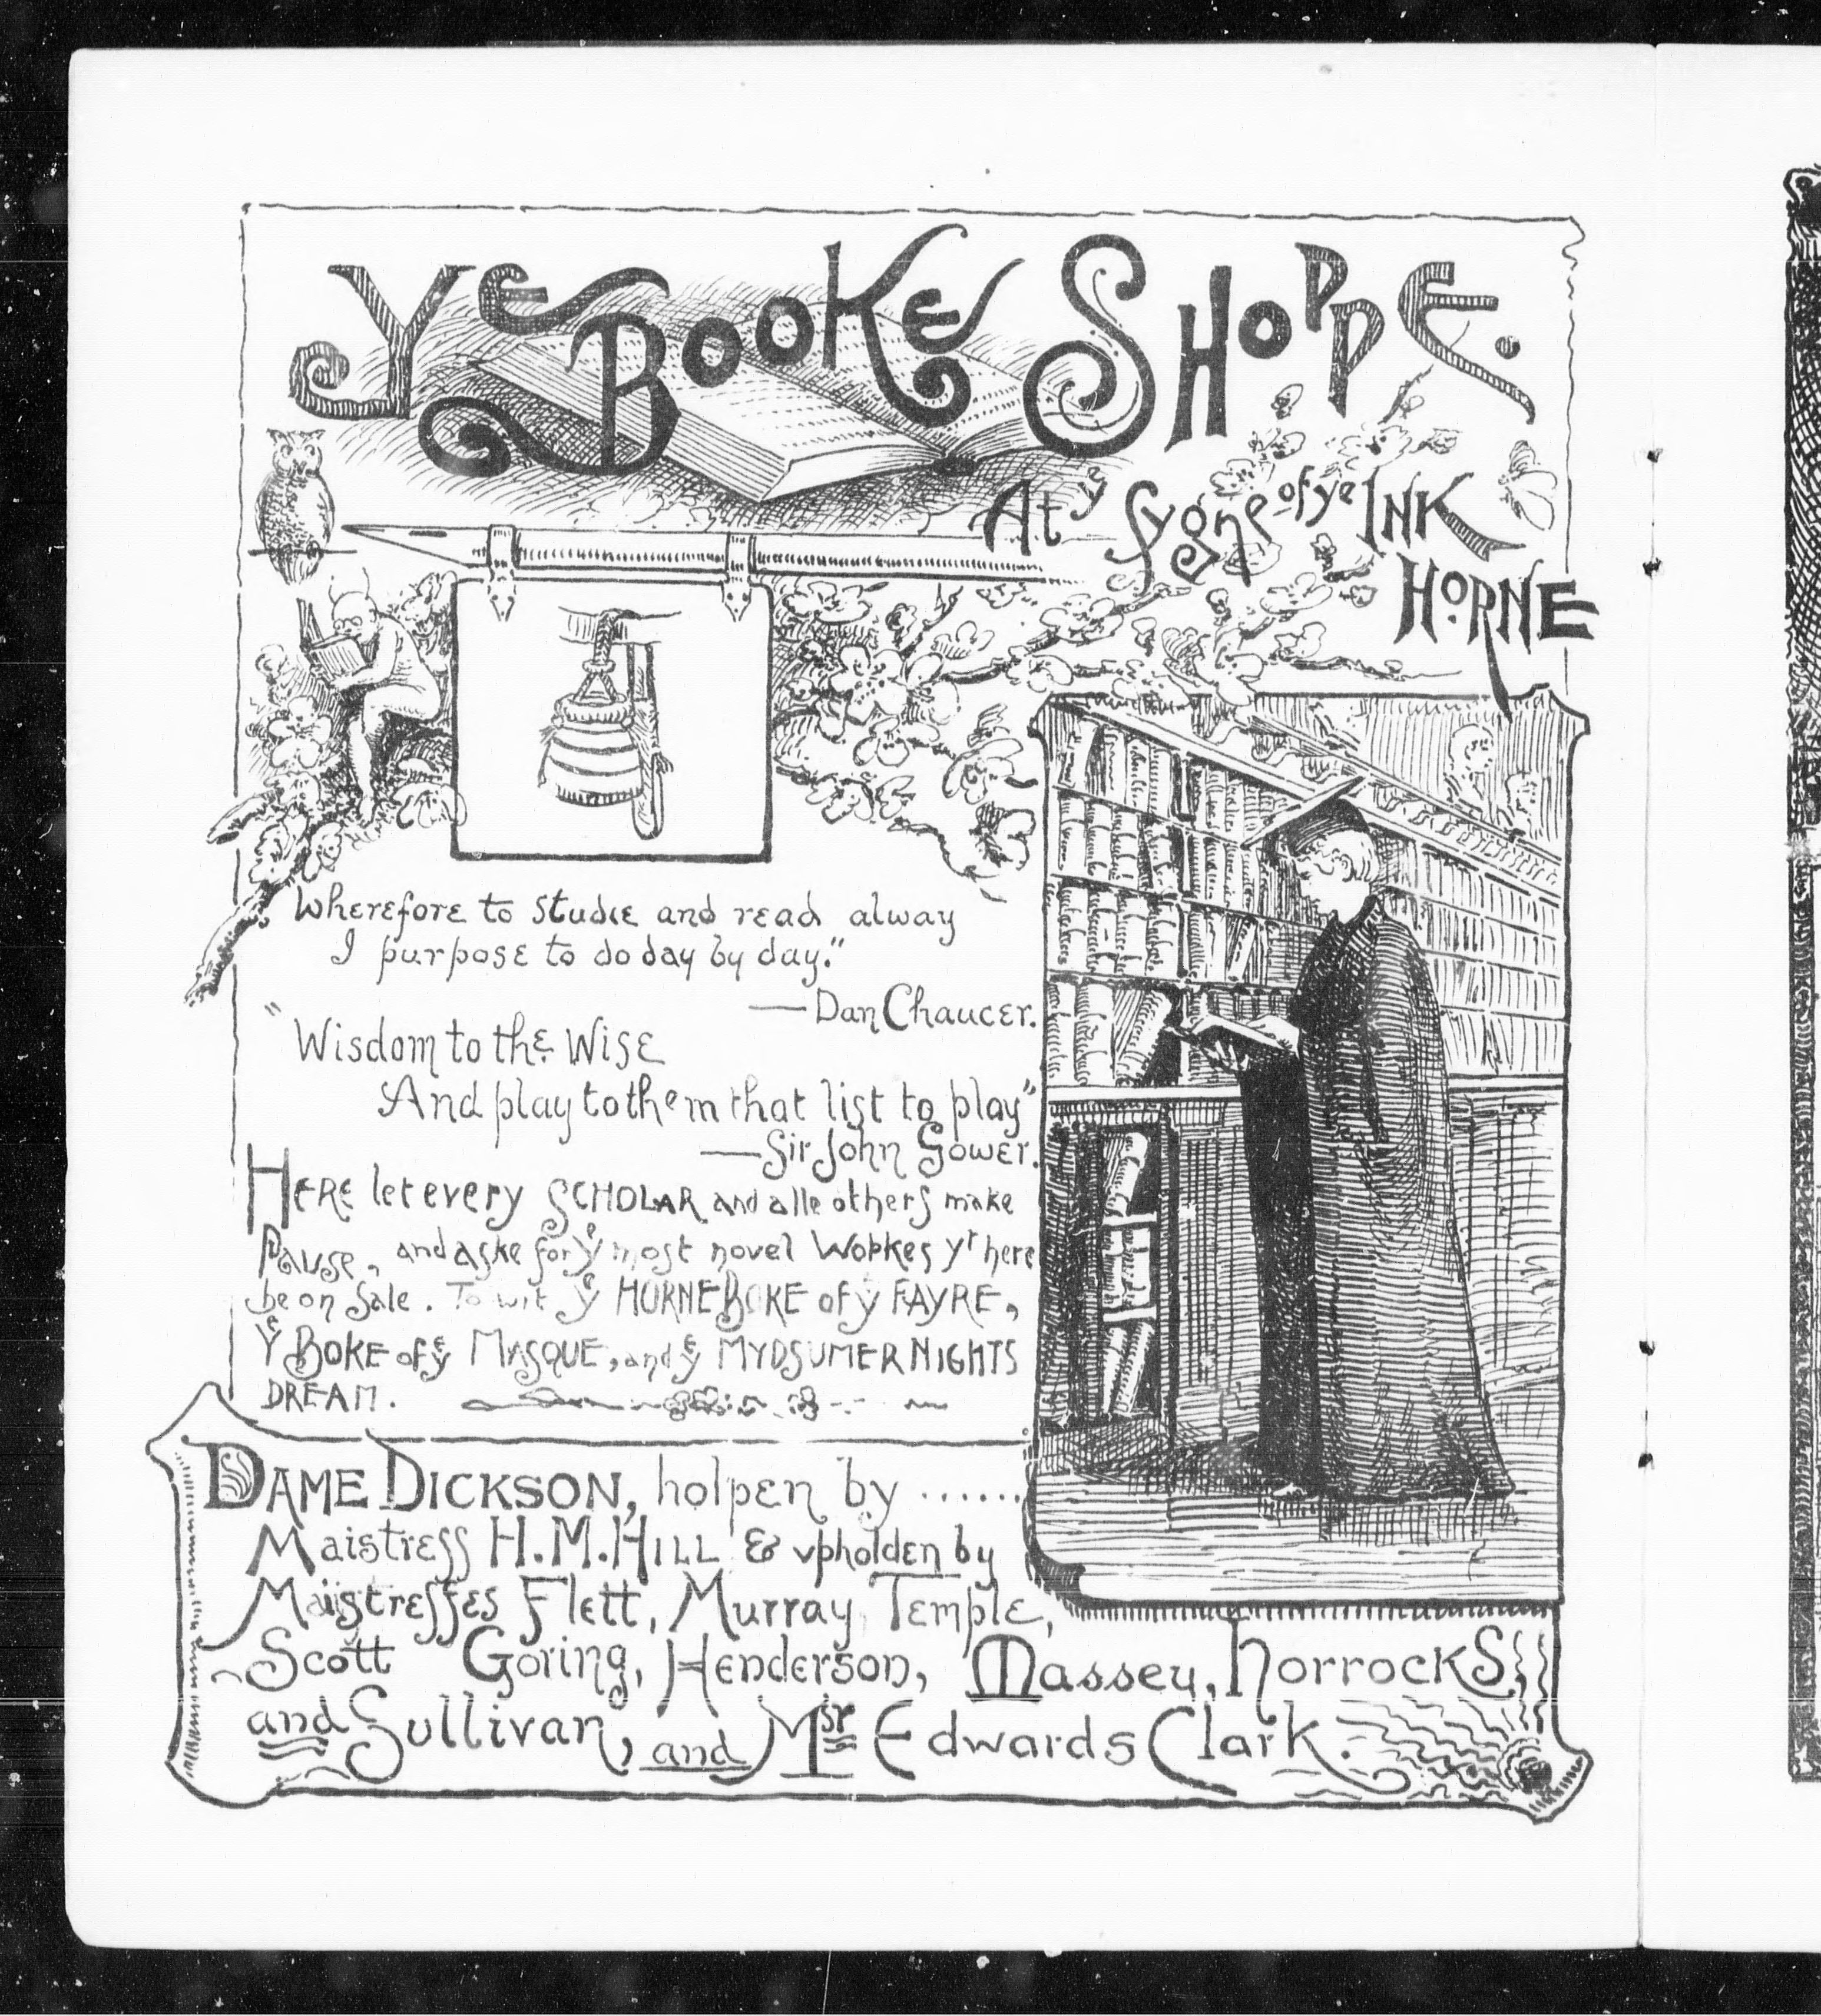 Ye BOOKE SHOPPE.
At ye Sygne of ye INK
HORNE
Wherefore to studie and read alway
I purpose to do day by day."
— Dan Chaucer.
"Wisdom to the Wise
And play to them that list to play"
— Sir John Gower.
HERE let every SCHOLAR and alle others make
Pause, and aske for ye most novel Workes yt here
be on Sale. To wit ye HORNE BOKE of ye FAYRE,
Ye BOKE of ye MASQUE, and ye MYDSUMER NIGHTS
DREAM.
DAME DICKSON, holpen by ......
Maistress H.M. HILL & vpholden by
Maistresses Flett, Murray, Temple,
Scott Goring, Henderson, Massey, Horrocks,
and Sullivan, and Msr Edwards Clark.